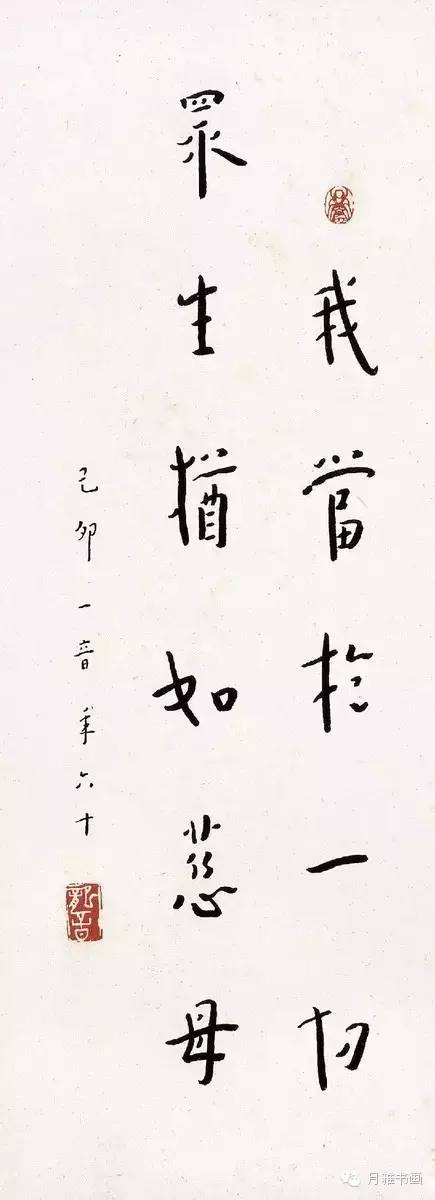 我當於一切
眾生猶如慈母
己卯一音年六十
龍音
月雅书画